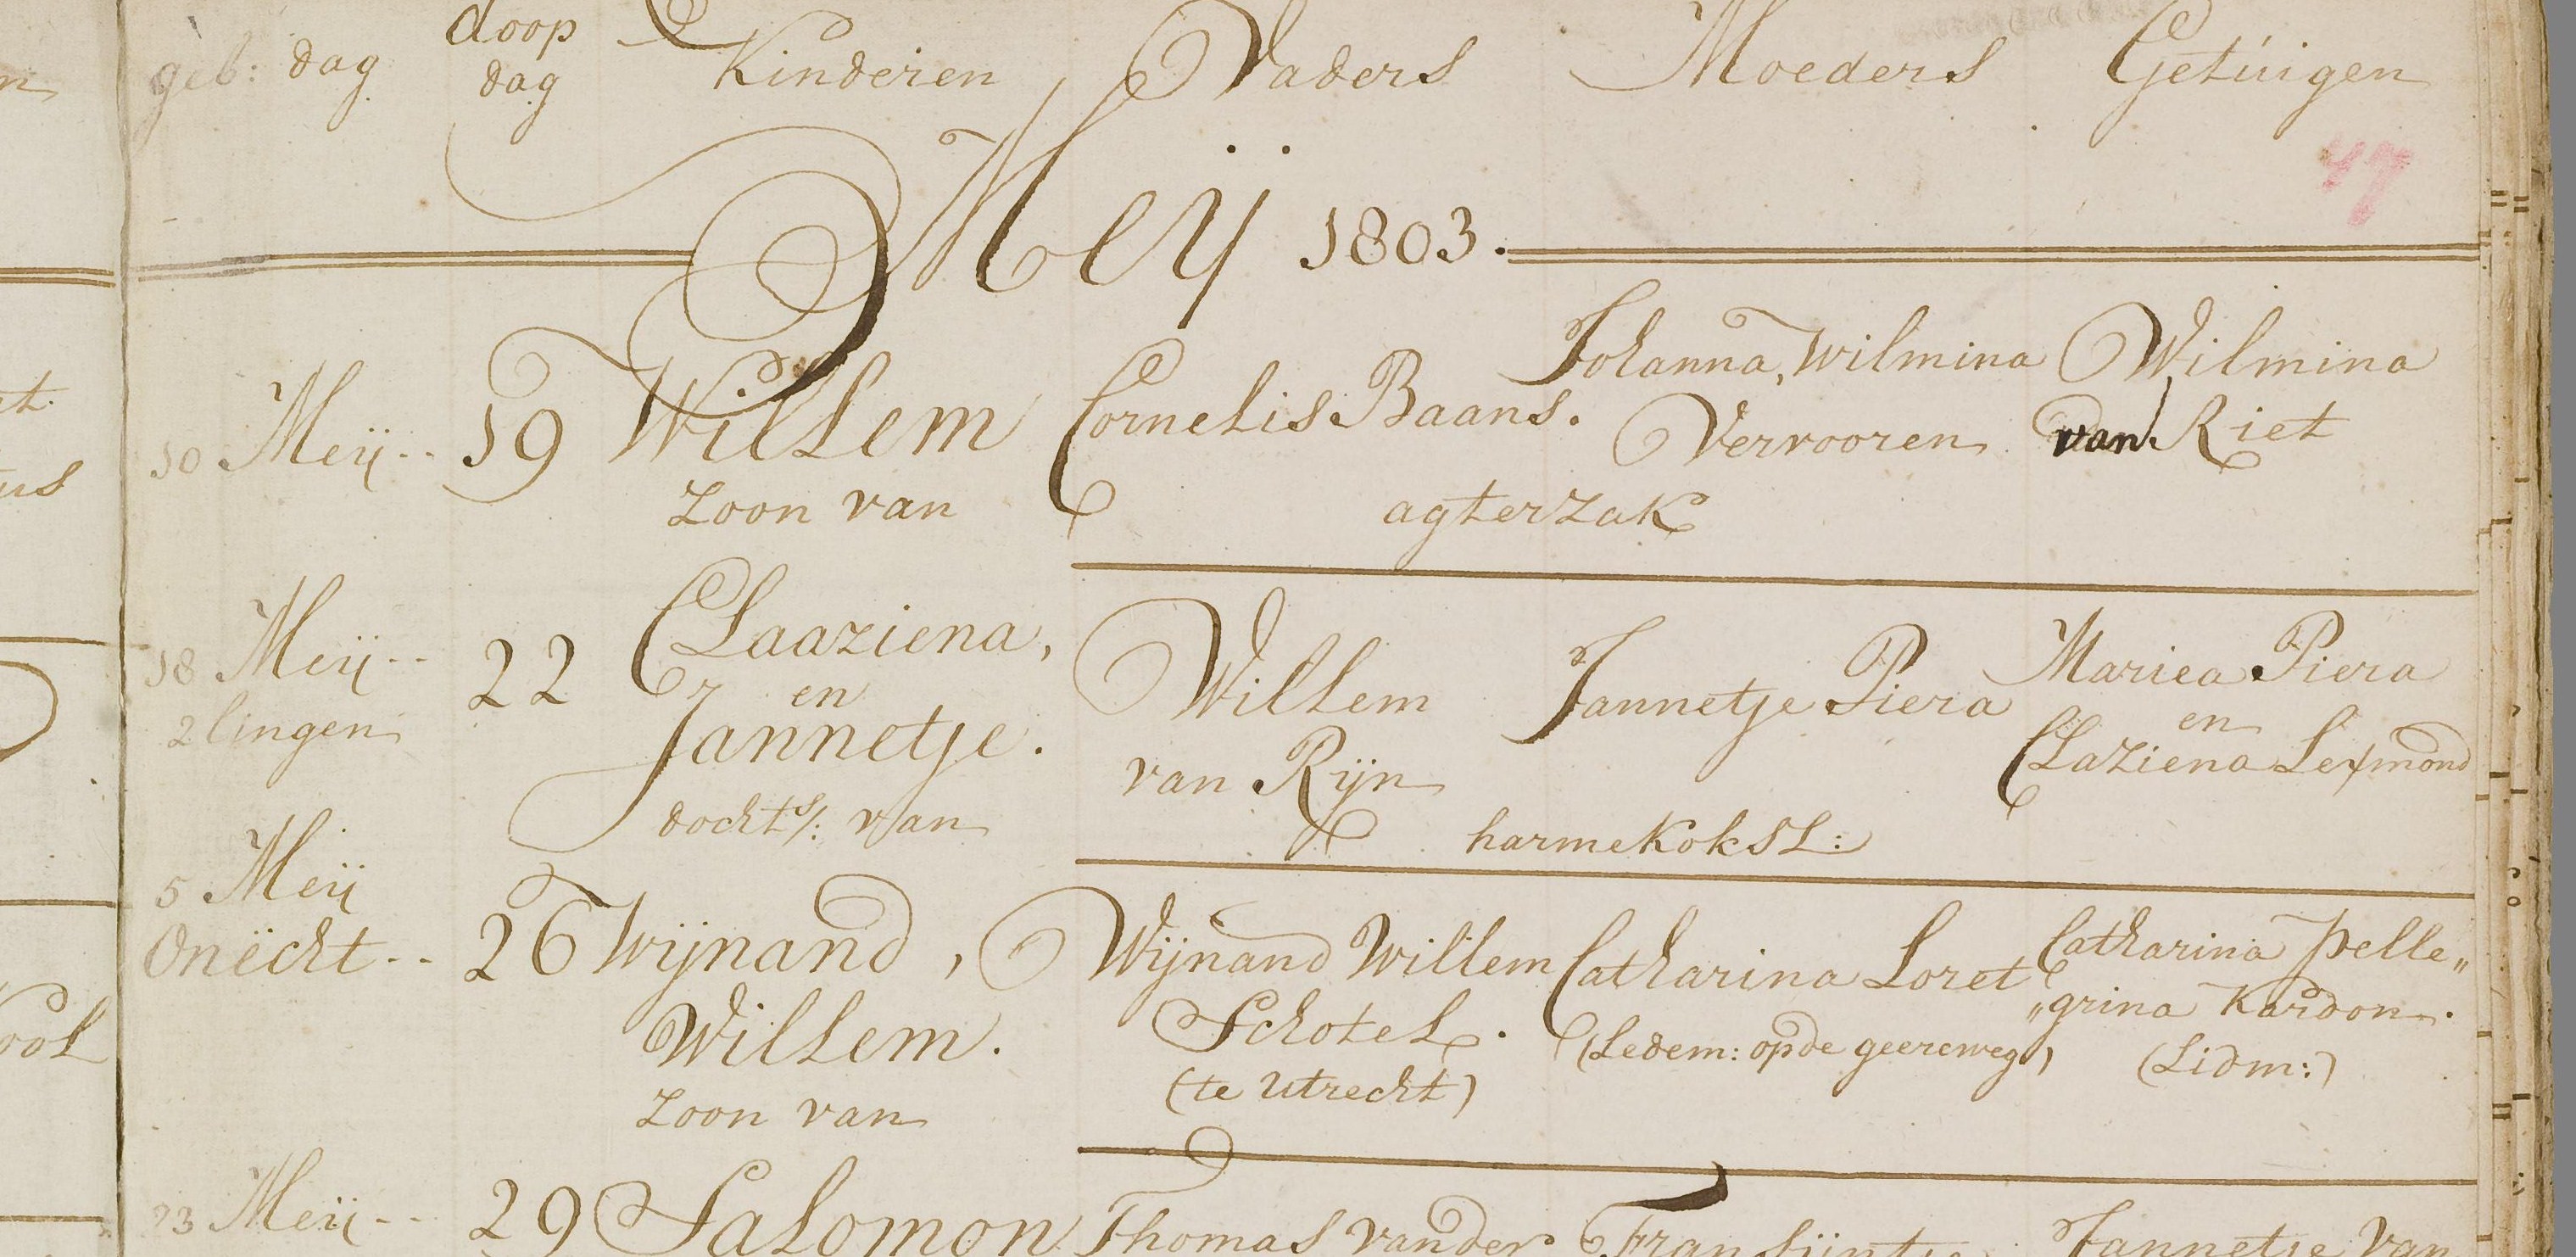 geb: dag doop dag Kinderen Vaders Moeders Getuigen
47
Meÿ 1803.
10 Meÿ-- 19 Willem Cornelis Baans. Johanna, Wilmina Wilmina
Vervooren van Riet
Zoon van agterzak
18 Meÿ-- 22 Claaziena, Willem Jannetje Piera Mariea Piera
2lingen en en
Jannetje. van Rijn Claziena Lexmond
docht^s/: van harmekoksL:
5 Meÿ
Onëcht-- 26 Wijnand, Wijnand Willem Catharina Loret Catharina Pelle„
Willem. Schotel. (Ledem: op de geereweg) „grina Kardon.
Zoon van (te Utrecht) (Lidm:)
23 Meÿ-- 29 Salomon Thomas vander Fransijntje Jannetje van